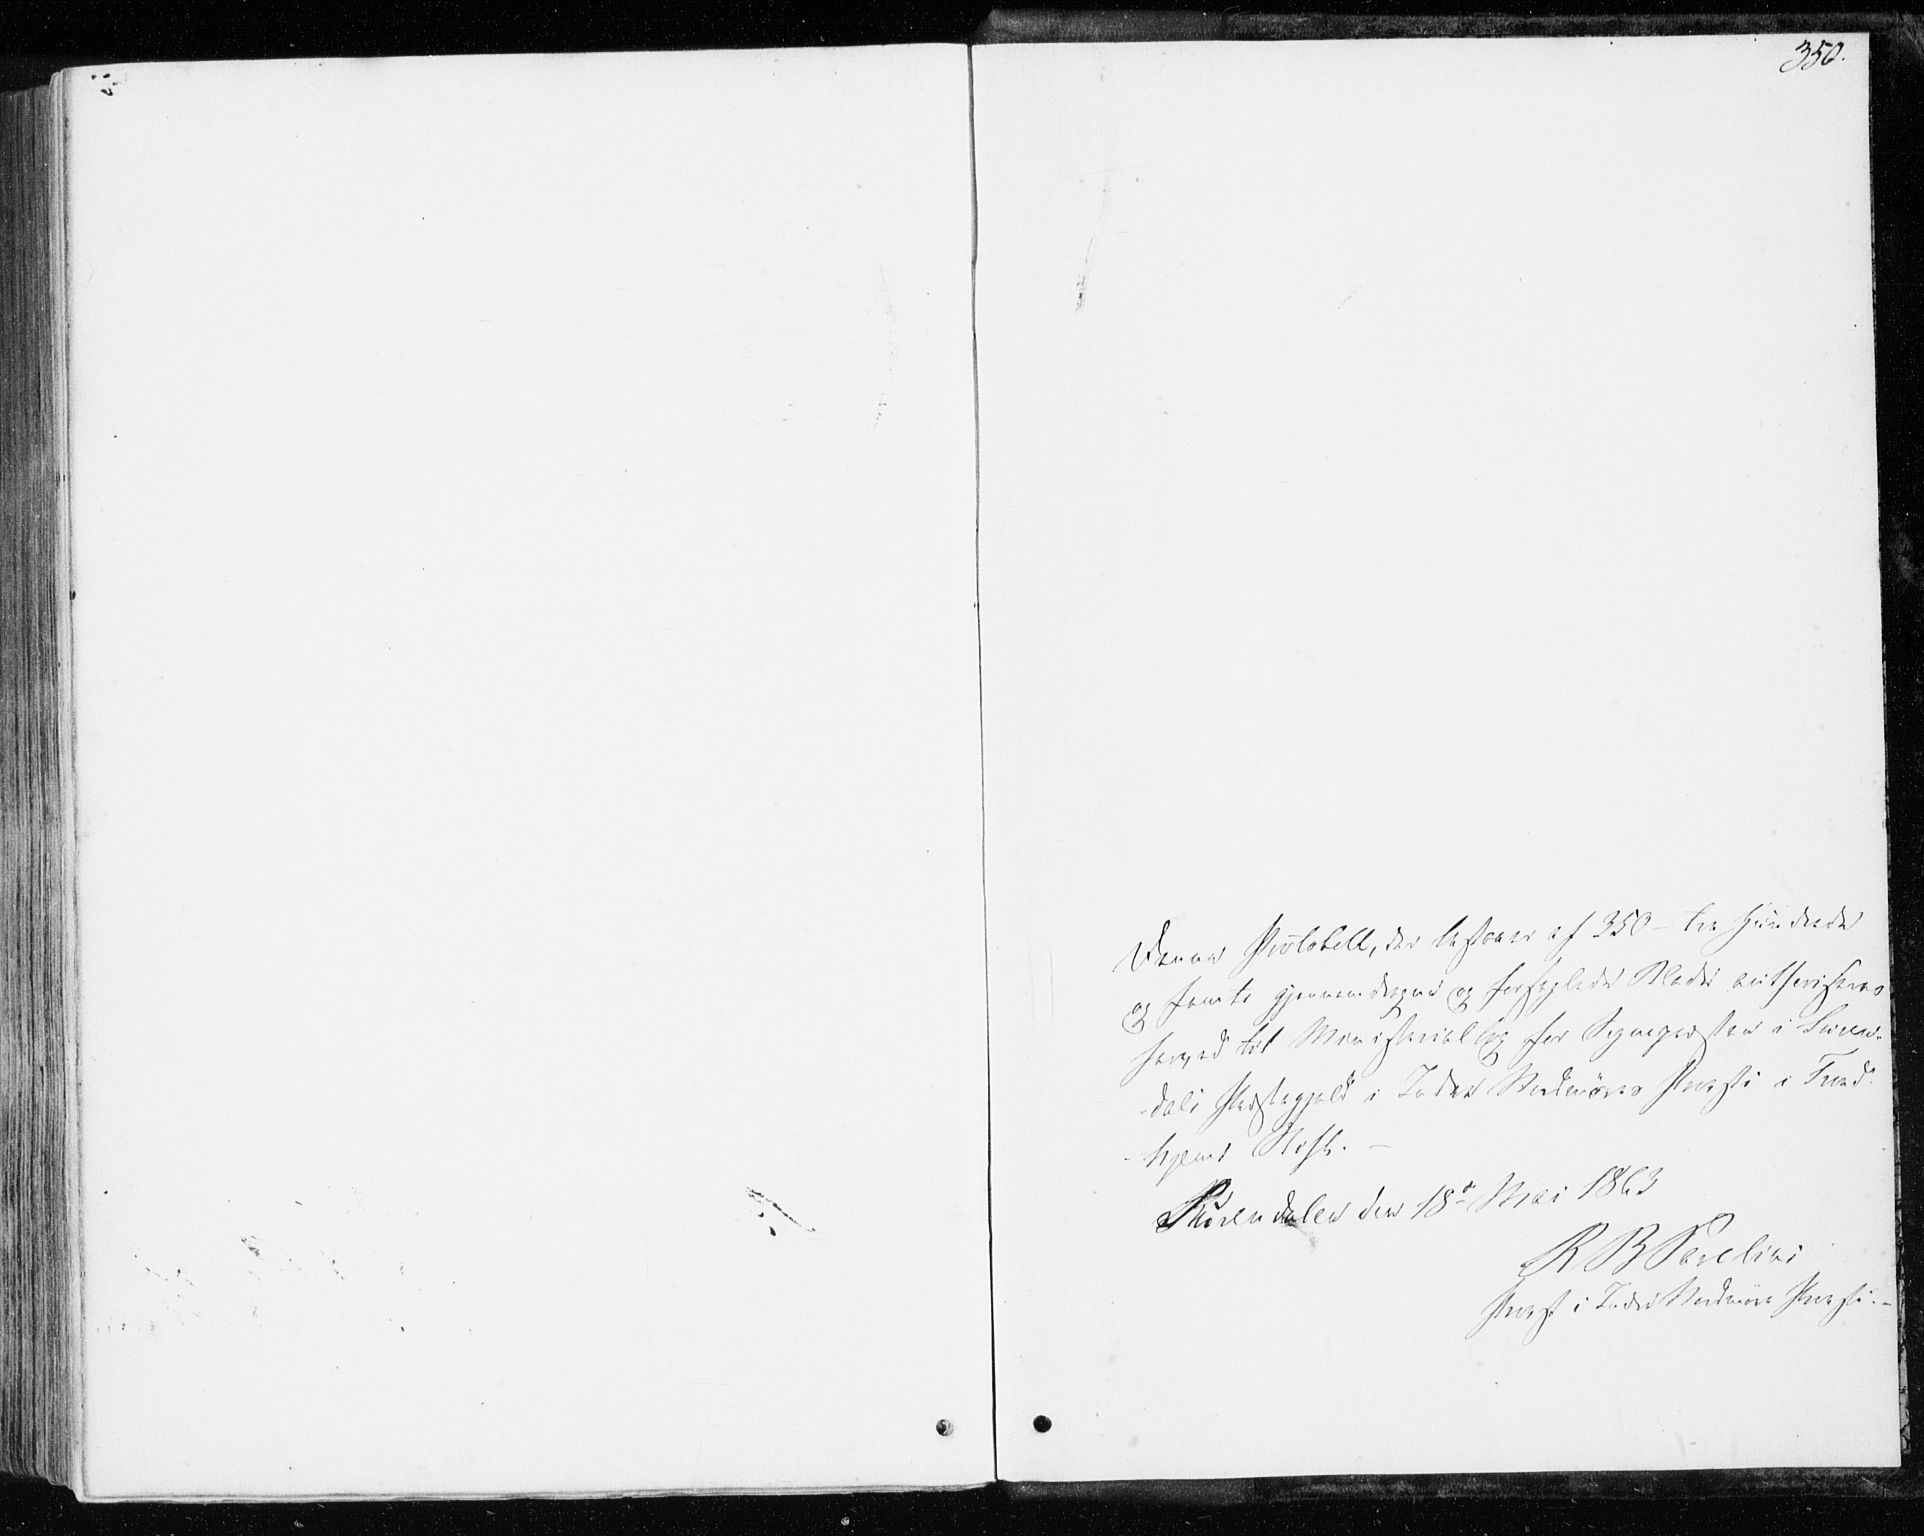 350.
Denne Protokoll, der bestaaer af 350 - tre Hundrede
og femti gjennemdragne og forseglede Blade authoriseres
herved til Ministerialbog for Sognepræsten i Suren-
-dals Præstegjeld i Indre Nordmøres Provsti i Trond-
-hjems Stift. -
Surendalen den 18de Mai 1863
R B Parelius
Provst i Indre Nordmøre Provsti. -